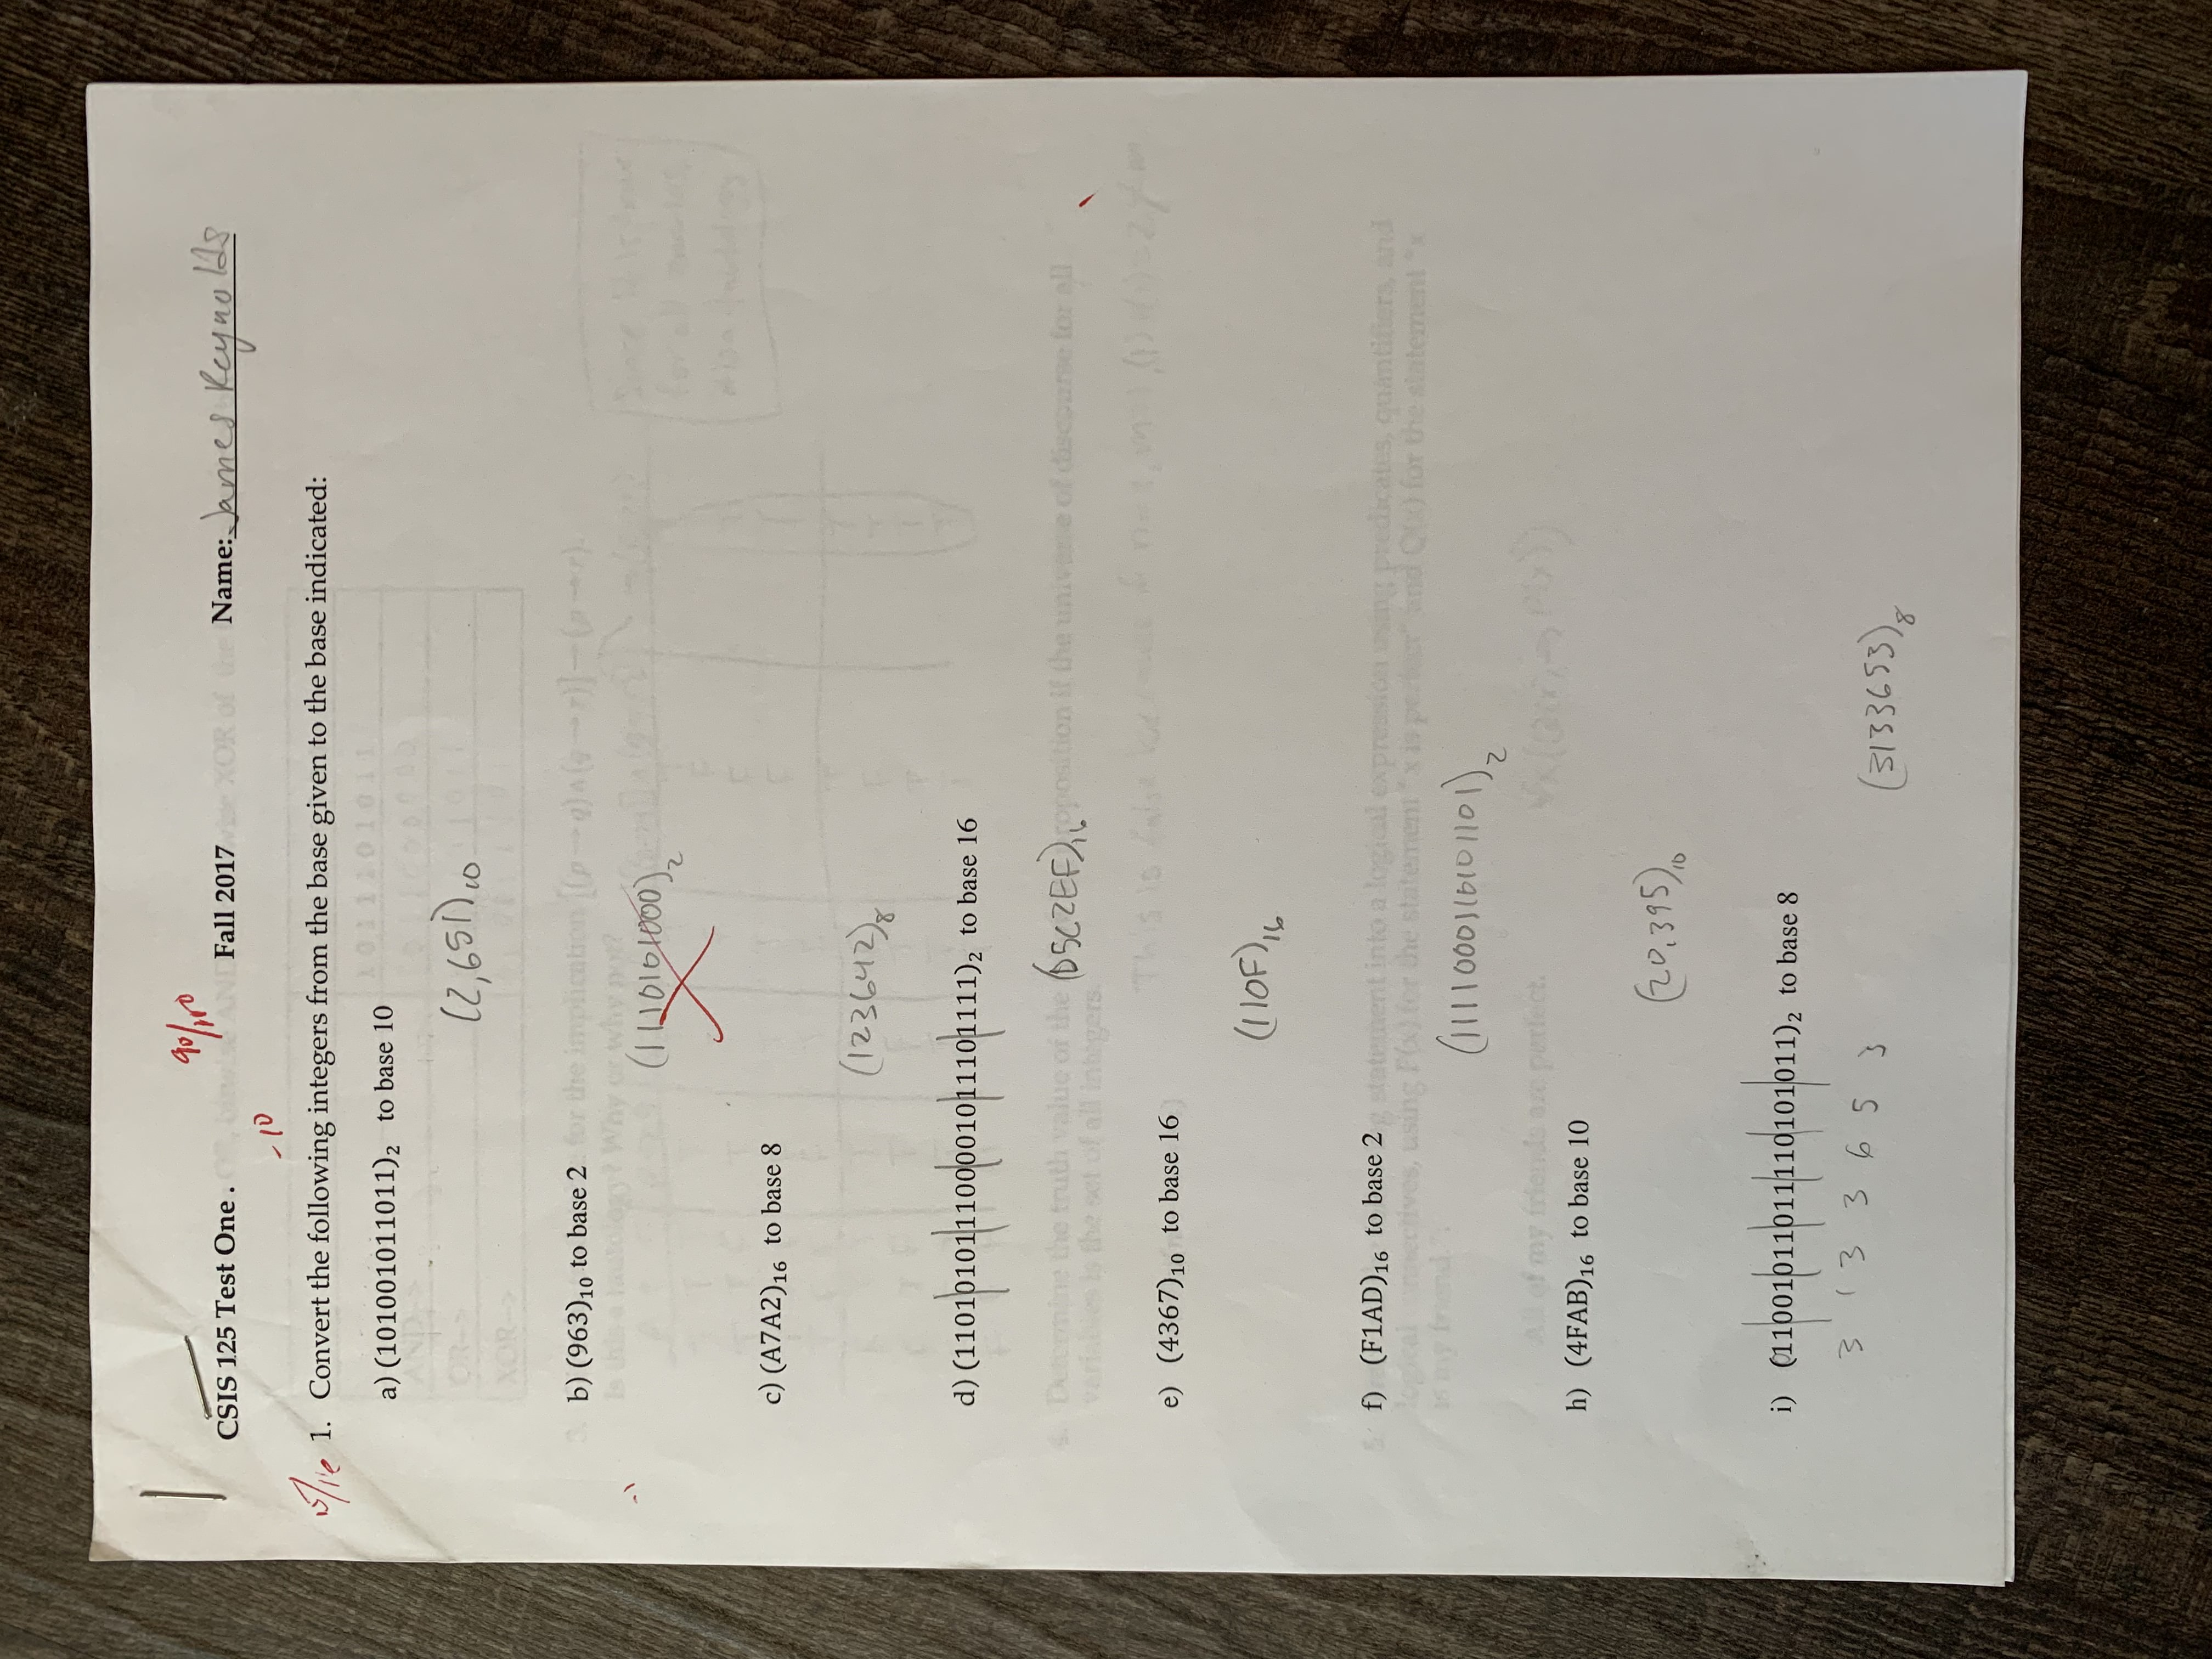 90/100
CSIS 125 Test One . Fall 2017 Name: James Reynolds
-10
1. Convert the following integers from the base given to the base indicated:
a) (101001011011)₂ to base 10
(2,651)₁₀
b) (963)₁₀ to base 2
-1
(1110101000)₂
c) (A7A2)₁₆ to base 8
(123642)₈
d) (110101011100001011101111)₂ to base 16
(D5C2EF)₁₆
e) (4367)₁₀ to base 16
(110F)₁₆
f) (F1AD)₁₆ to base 2
(1111000110101101)₂
h) (4FAB)₁₆ to base 10
(20,395)₁₀
i) (11001011011110101011)₂ to base 8
3 1 3 3 6 5 3
(3133653)₈